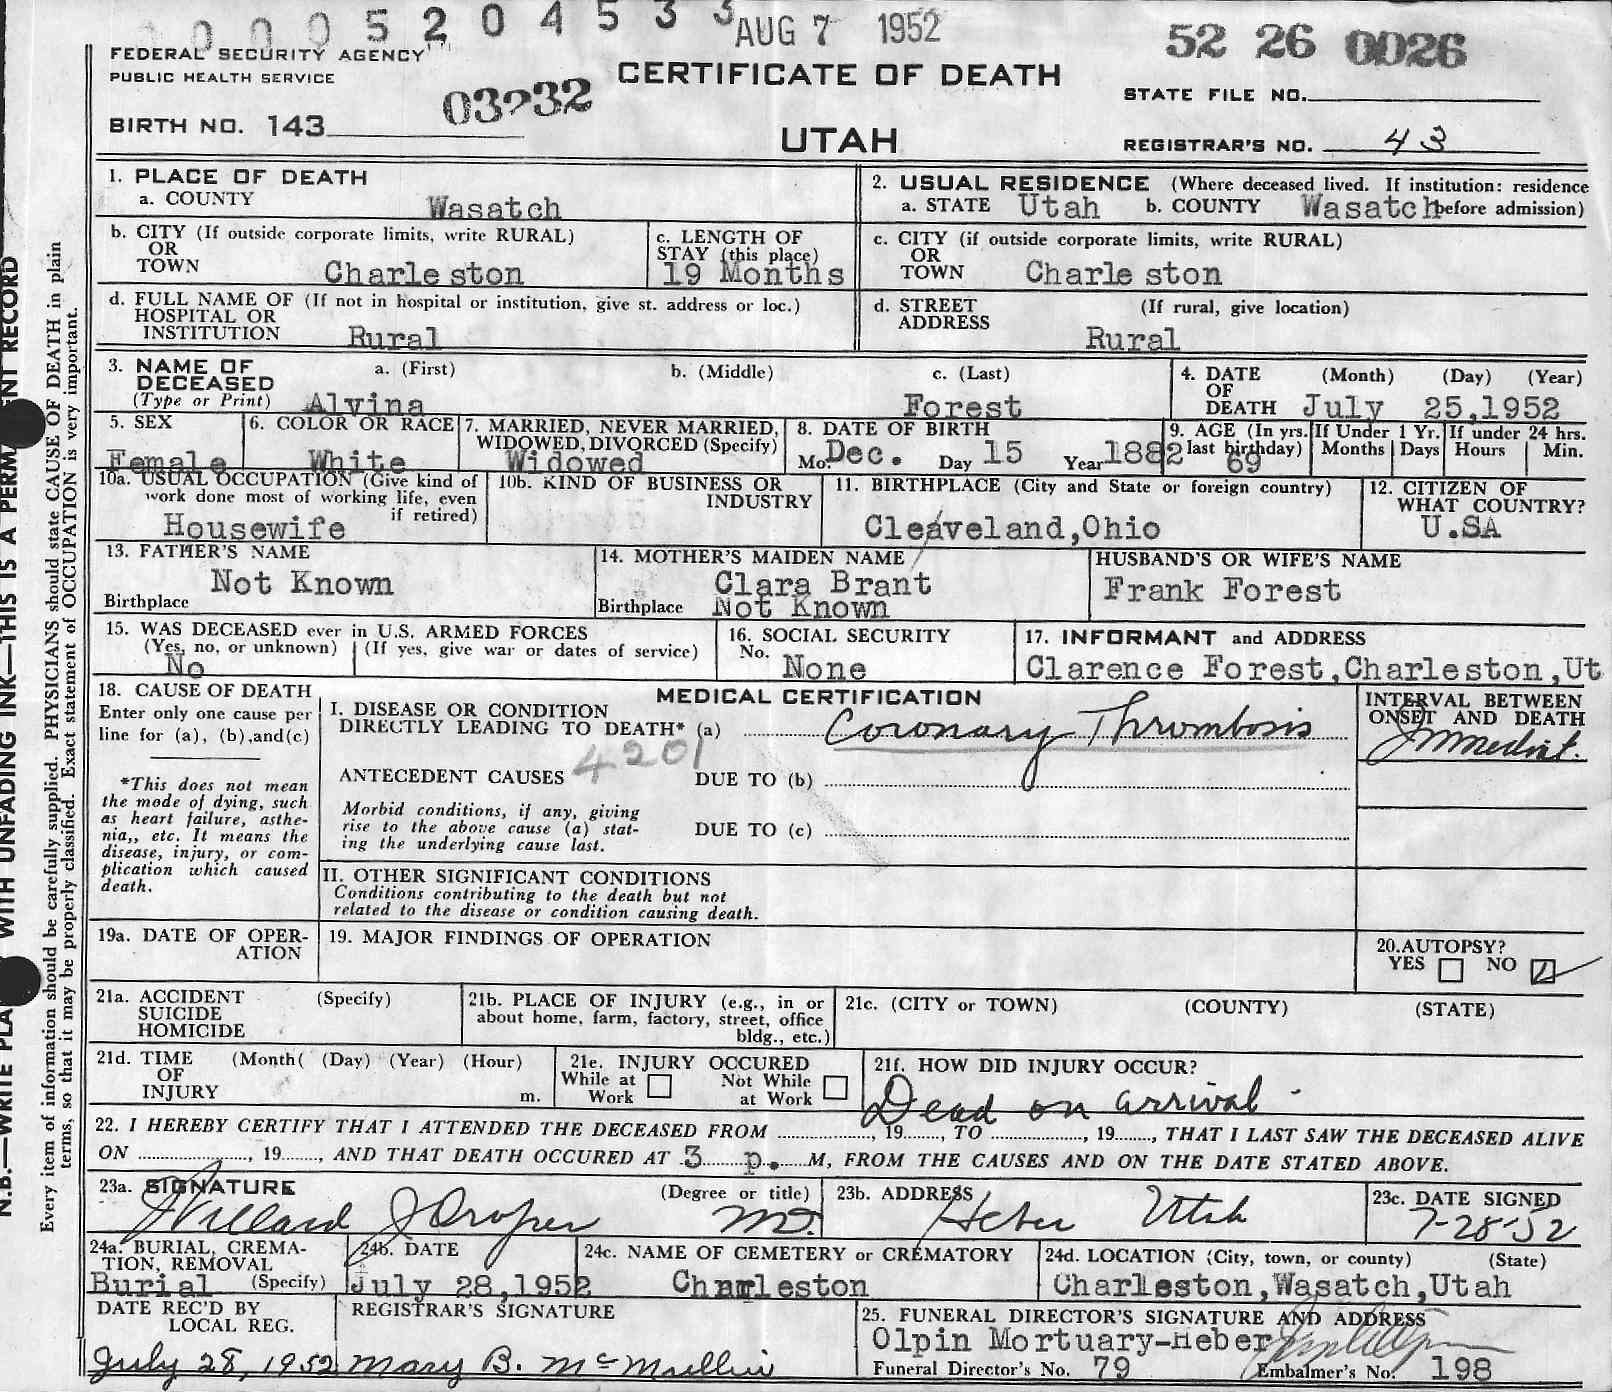 0 0 0 5 2 0 4 5 3 3 AUG 7 1952 52 26 0026
FEDERAL SECURITY AGENCY
PUBLIC HEALTH SERVICE
CERTIFICATE OF DEATH
STATE FILE NO.
03232
BIRTH NO. 143
UTAH
REGISTRAR'S NO. 43
1. PLACE OF DEATH
a. COUNTY Wasatch
2. USUAL RESIDENCE (Where deceased lived. If institution: residence
a. STATE Utah b. COUNTY Wasatch before admission)
b. CITY (If outside corporate limits, write RURAL)
OR
TOWN Charleston
c. LENGTH OF
STAY (this place)
19 Months
c. CITY (if outside corporate limits, write RURAL)
OR
TOWN Charleston
d. FULL NAME OF (If not in hospital or institution, give st. address or loc.)
HOSPITAL OR
INSTITUTION Rural
d. STREET (If rural, give location)
ADDRESS
Rural
3. NAME OF
DECEASED
(Type or Print)
a. (First) b. (Middle) c. (Last)
Alvina Forest
4. DATE (Month) (Day) (Year)
OF
DEATH July 25,1952
5. SEX
Female
6. COLOR OR RACE
White
7. MARRIED, NEVER MARRIED,
WIDOWED, DIVORCED (Specify)
Widowed
8. DATE OF BIRTH
Mo. Dec. Day 15 Year 1882
9. AGE (In yrs.
last birthday)
69
If Under 1 Yr.
Months Days
If under 24 hrs.
Hours Min.
10a. USUAL OCCUPATION (Give kind of
work done most of working life, even
if retired)
Housewife
10b. KIND OF BUSINESS OR
INDUSTRY
11. BIRTHPLACE (City and State or foreign country)
Cleaveland,Ohio
12. CITIZEN OF
WHAT COUNTRY?
U.SA
13. FATHER'S NAME
Not Known
Birthplace
14. MOTHER'S MAIDEN NAME
Clara Brant
Birthplace Not Known
HUSBAND'S OR WIFE'S NAME
Frank Forest
15. WAS DECEASED ever in U.S. ARMED FORCES
(Yes, no, or unknown) (If yes, give war or dates of service)
No
16. SOCIAL SECURITY
No. None
17. INFORMANT and ADDRESS
Clarence Forest,Charleston,Ut
18. CAUSE OF DEATH
Enter only one cause per
line for (a), (b),and(c)
*This does not mean
the mode of dying, such
as heart failure, asthe-
nia,, etc. It means the
disease, injury, or com-
plication which caused
death.
MEDICAL CERTIFICATION
I. DISEASE OR CONDITION
DIRECTLY LEADING TO DEATH* (a) Coronary Thrombosis
4201
ANTECEDENT CAUSES DUE TO (b)
Morbid conditions, if any, giving
rise to the above cause (a) stat-
ing the underlying cause last.
DUE TO (c)
II. OTHER SIGNIFICANT CONDITIONS
Conditions contributing to the death but not
related to the disease or condition causing death.
INTERVAL BETWEEN
ONSET AND DEATH
Immediat.
19a. DATE OF OPER-
ATION
19. MAJOR FINDINGS OF OPERATION
20.AUTOPSY?
YES NO
21a. ACCIDENT (Specify)
SUICIDE
HOMICIDE
21b. PLACE OF INJURY (e.g., in or
about home, farm, factory, street, office
bldg., etc.)
21c. (CITY or TOWN) (COUNTY) (STATE)
21d. TIME (Month( (Day) (Year) (Hour)
OF
INJURY m.
21e. INJURY OCCURED
While at Work Not While at Work
21f. HOW DID INJURY OCCUR?
Dead on arrival
22. I HEREBY CERTIFY THAT I ATTENDED THE DECEASED FROM ..............., 19......., TO ..............., 19......., THAT I LAST SAW THE DECEASED ALIVE
ON ..............., 19......., AND THAT DEATH OCCURED AT 3 p. M, FROM THE CAUSES AND ON THE DATE STATED ABOVE.
23a. SIGNATURE (Degree or title)
Willard J Draper MD.
23b. ADDRESS
Heber Utah
23c. DATE SIGNED
7-28-52
24a. BURIAL, CREMA-
TION, REMOVAL
Burial (Specify)
24b. DATE
July 28,1952
24c. NAME OF CEMETERY or CREMATORY
Charleston
24d. LOCATION (City, town, or county) (State)
Charleston,Wasatch,Utah
DATE REC'D BY
LOCAL REG.
July 28, 1952
REGISTRAR'S SIGNATURE
Mary B. McMullin
25. FUNERAL DIRECTOR'S SIGNATURE AND ADDRESS
Olpin Mortuary-Heber
Funeral Director's No. 79 Embalmer's No. 198
N.B.—WRITE WITH UNFADING INK—THIS IS A RECORD
Every item of information should be carefully supplied. PHYSICIANS should state CAUSE OF DEATH in plain
terms, so that it may be properly classified. Exact statement of OCCUPATION is very important.